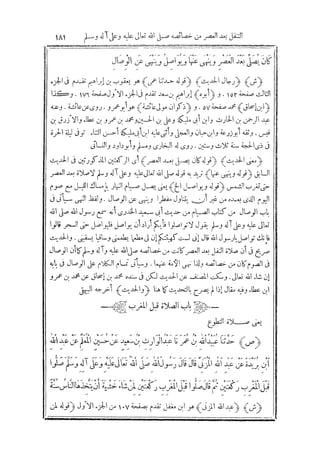 التنفل بعد العصر من خصائصه صلى الله تعالى عليه وعلى آله وسلم ١٨١
كَانَ يُصَلِّي بَعْدَ الْعَصْرِ وَيَنْهَى عَنْهَا وَيُوَاصِلُ وَيَنْهَى عَنِ الْوِصَالِ
(ش) (رجال الحديث) (قوله حدثنا عمى) هو يعقوب بن إبراهيم تقدم في الجزء
الثالث صفحة ١٥٣ . و (أبوه) إبراهيم بن سعد تقدم في الجزء الأول صفحة ١٧٦ . وكذا
(ابن إسحاق) محمد صفحة ٥٧ . و (ذكوان مولى عائشة) أبو عمرو . روى عن عائشة . وعنه
عبد الرحمن بن الحارث وابن أبي مليكة وعلى بن الحسين ومحمد بن عمرو بن عطاء والأزرق بن
قيس . وثقه أبو زرعة وابن حبان والعجلى وأثنى عليه ابن أبي مليكة أحسن الثناء . توفى ليلة الحرة
في ذى الحجة سنة ثلاث وستين . روى له البخارى ومسلم وأبو داود والنسائى
(معنى الحديث) (قوله كان يصلى بعد العصر) أى الركعتين المذكورتين في الحديث
السابق (قوله وينهى عنها) تريد به قوله صلى الله تعالى عليه وعلى آله وسلم لا صلاة بعد العصر
حتى تغرب الشمس (قوله ويواصل الخ) يعنى يصل صيام النهار بإمساك الليل مع صوم
اليوم الذى بعده من غير أن يتناول مفطرا وينهى عن الوصال . ولفظ النهى سيأتى في
باب الوصال من كتاب الصيام من حديث أبى سعيد الخدرى أنه سمع رسول الله صلى الله
تعالى عليه وعلى آله وسلم يقول لا تواصلوا فأيكم أراد أن يواصل فليواصل حتى السحر قالوا
فإنك تواصل يا رسول الله قال إنى لست كهيئتكم إن لى مطعما يطعمنى وساقيا يسقينى . والحديث
صريح في أن صلاة النفل بعد العصر كانت من خصائصه صلى الله عليه وآله وسلم كما أن الوصال
في الصوم كان من خصائصه ولذا نهى الأمة عنهما . وسيأتى تمام الكلام على الوصال في بابه
إن شاء الله تعالى . وسكت المصنف عن الحديث لكن في سنده محمد بن إسحاق عن محمد بن عمرو
ابن عطاء وفيه مقال إذا لم يصرح بالتحديث كما هنا (والحديث) أخرجه البيهقى
باب الصلاة قبل المغرب
يعنى صلاة التطوع
(ص) حَدَّثَنَا عُبَيْدُ اللهِ بْنُ عُمَرَ نَا عَبْدُ الْوَارِثِ بْنُ سَعِيدٍ عَنْ حُسَيْنٍ الْمُعَلِّمِ عَنْ عَبْدِ اللهِ
ابْنِ بُرَيْدَةَ عَنْ عَبْدِ اللهِ الْمُزَنِيِّ قَالَ قَالَ رَسُولُ اللهِ صَلَّى اللهُ تَعَالَى عَلَيْهِ وَعَلَى آلِهِ وَسَلَّمَ صَلُّوا
قَبْلَ الْمَغْرِبِ رَكْعَتَيْنِ ثُمَّ قَالَ صَلُّوا قَبْلَ الْمَغْرِبِ رَكْعَتَيْنِ لِمَنْ شَاءَ خَشْيَةَ أَنْ يَتَّخِذَهَا النَّاسُ سُنَّةً
(ش) (عبد الله المزنى) هو ابن مغفل تقدم بصفحة ١٠٧ من الجزء الأول (قوله لمن